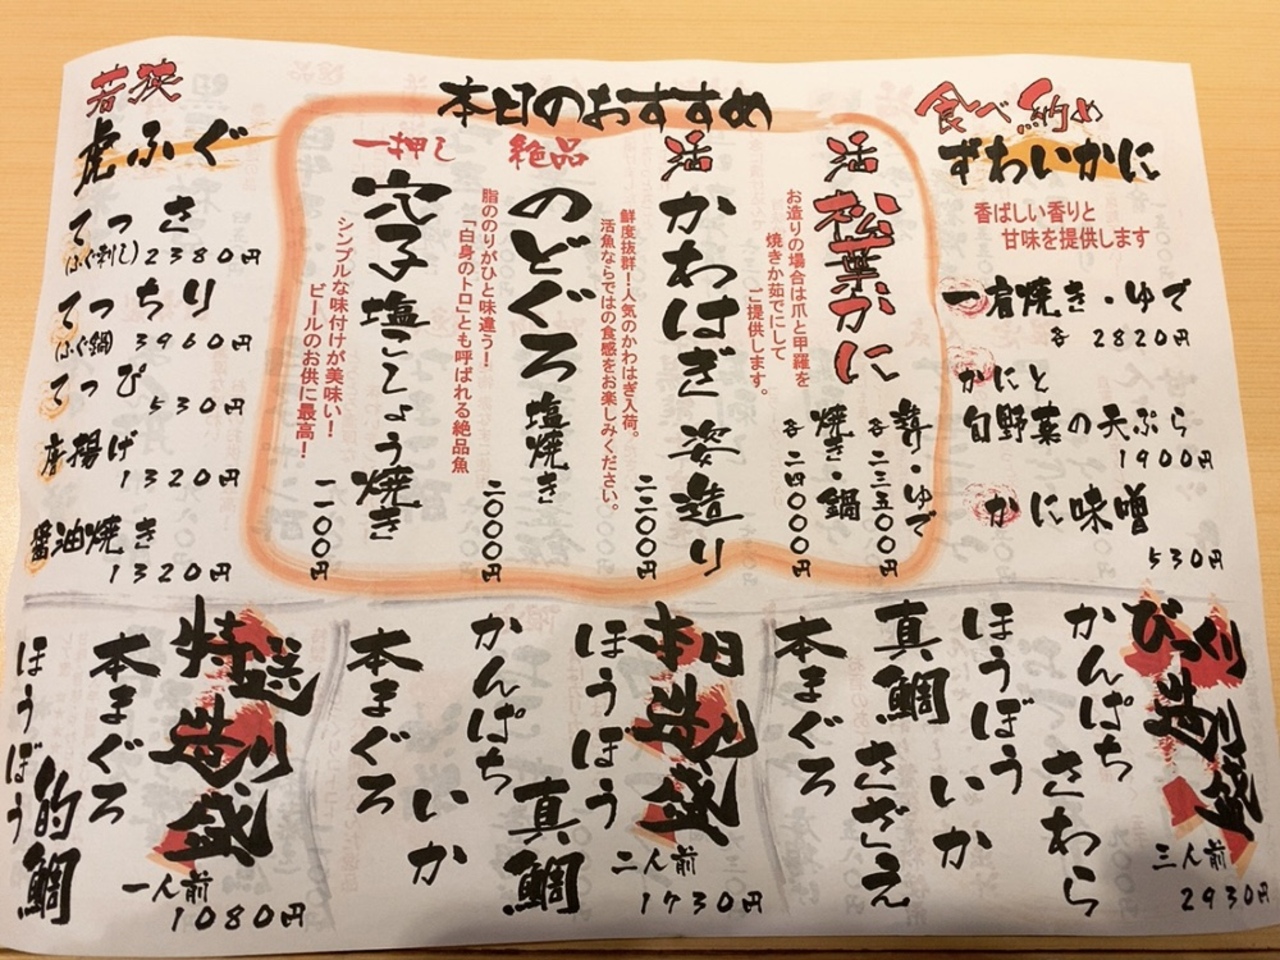 本日のおすすめ
食べ納め
ずわいかに
香ばしい香りと
甘味を提供します
一肩焼き・ゆで
各 2820円
かにと
旬野菜の天ぷら
1900円
かに味噌
530円
活 松葉かに
造り・ゆで
各 二三五〇〇円
焼き・鍋
各 二四〇〇〇円
お造りの場合は爪と甲羅を
焼きか茹でにして
ご提供します。
活 かわはぎ 姿造り
二三〇〇円
鮮度抜群!人気のかわはぎ入荷。
活魚ならではの食感をお楽しみください。
絶品
のどぐろ 塩焼き
二〇〇〇円
脂ののりがひと味違う!
「白身のトロ」とも呼ばれる絶品魚
一押し
穴子 塩こしょう焼き
一一〇〇円
シンプルな味付けが美味い!
ビールのお供に最高!
若狭
虎ふぐ
てっさ
(ふぐ刺し)2380円
てっちり
(ふぐ鍋) 3960円
てっぴ
530円
唐揚げ
1320円
醤油焼き
1320円
びっくり造り盛
三人前
2930円
かんぱち さわら
ほうぼう いか
真鯛 さざえ
本まぐろ
本日造り盛
二人前
1730円
ほうぼう 真鯛
かんぱち いか
本まぐろ
特選造り盛
一人前
1080円
本まぐろ
的鯛
ほうぼう